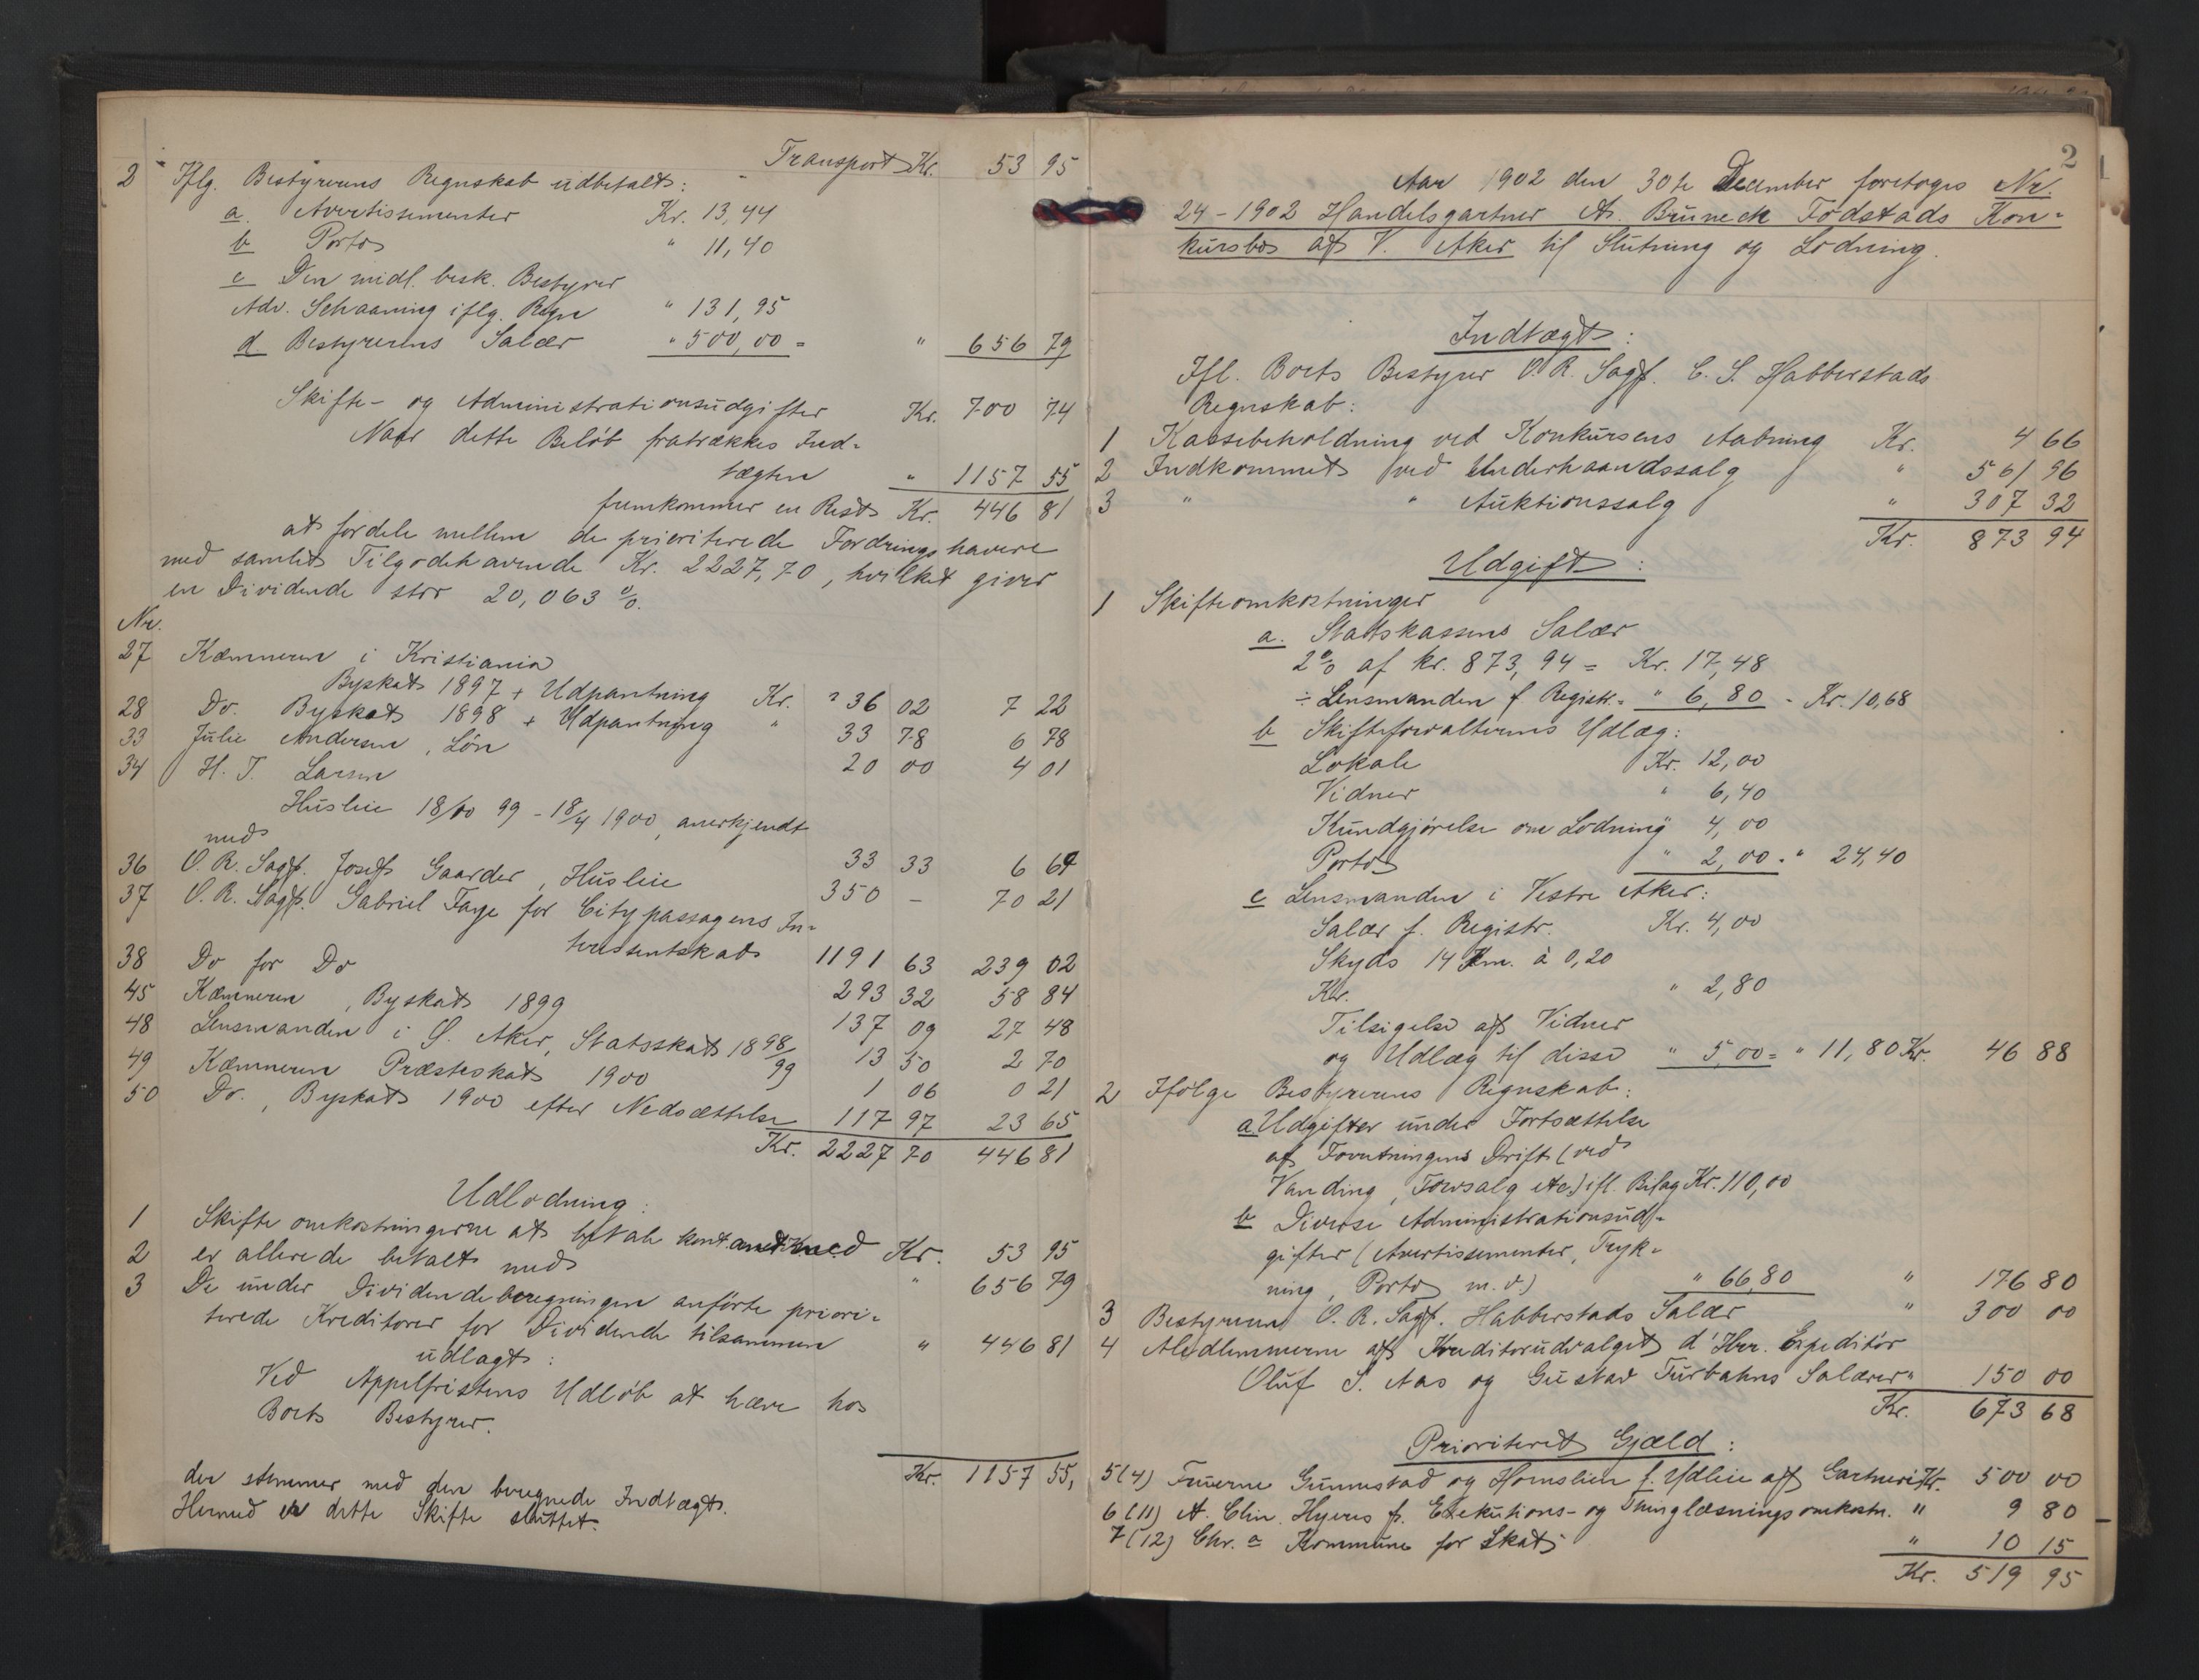 Transport Kr. 53 95
2 Iflg. Bestyrerens Regnskab udbetalt:
a. Avertissementer Kr. 13,44
b Porto " 11,40
c Den midl. besk. Bestyrer
Adv. Schaaning iflg. Regn " 131,95
d Bestyrerens Salær " 500,00 = " 656 79
Skifte- og Administrationsudgifter Kr. 700 74
Naar dette Beløb fratrækkes Ind-
tægten " 1157 55
fremkommer en Rest Kr. 446 81
at fordele mellem de prioriterede Fordringshavere
med samlet Tilgodehavende Kr. 2227,70, hvilket giver
en Dividende stor 20,063 %.
Nr.
27 Kæmneren i Kristiania
Byskat 1897 + Udpantning Kr. 36 02 7 22
28 Do. Byskat 1898 + Udpantning " 33 78 6 78
33 Julie Andersen, Løn 20 00 4 01
34 H. T. Larsen
Husleie 18/10 99 - 18/4 1900, anerkjendt
med 33 33 6 69
36 O. R. Sagf. Josef Gaarder, Husleie 350 – 70 21
37 O. R. Sagf. Gabriel Faye for Citypassagens In-
teressentskab 1191 63 239 02
38 Do for Do 293 32 58 84
45 Kæmneren, Byskat 1899 137 09 27 48
48 Lensmanden i Ø. Aker, Statsskat 1898/99 13 50 2 70
49 Kæmneren Præsteskat 1900 1 06 0 21
50 Do., Byskat 1900 efter Nedsættelse 117 97 23 65
Kr. 2227 70 446 81
Udlodning:
1 Skifteomkostningerne at betale kontant med Kr. 53 95
2 er allerede betalt med " 656 79
3 De under Dividendeberegningen anførte priori-
terede Kreditorer for Dividende tilsammen
udlagt: " 446 81
Ved Appelfristens Udløb at hæve hos
Boets Bestyrer.
Kr. 1157 55,
der stemmer med den beregnede Indtægt.
Hermed er dette Skifte sluttet.
2
Aar 1902 den 30te December foretoges Nr.
24-1902 Handelsgartner A. Bruneck Fodstads Kon-
kursbo af V. Aker til Slutning og Lodning.
Indtægt:
Ifl. Boets Bestyrer O. R. Sagf. C. S. Habberstads
Regnskab:
1 Kassebeholdning ved Konkursens Aabning Kr. 4 66
2 Indkommet ved Underhaandssalg " 561 96
3 " " Auktionssalg " 307 32
Kr. 873 94
Udgift:
1 Skifteomkostninger
a. Statskassens Salær
2 % af kr. 873,94 = Kr. 17,48
÷ Lensmanden f. Registr. = " 6,80 - Kr. 10,68
b Skifteforvalterens Udlæg:
Lokale Kr. 12,00
Vidner " 6,40
Kundgjørelse om Lodning " 4,00
Porto " 2,00 = " 24,40
c Lensmanden i Vestre Aker:
Salær f. Registr. Kr. 4,00
Skyds 14 Km. à 0,20
Kr. " 2,80
Tilsigelse af Vidner
og Udlæg til disse " 5,00 = " 11,80 Kr. 46 88
2 Ifølge Bestyrerens Regnskab:
a Udgifter under Fortsættelse
af Forretningens Drift (ved
Vanding, Torvsalg etc.) ifl. Bilag Kr. 110,00
b Diverse Administrationsud-
gifter (Avertissementer, Tryk-
ning, Porto m. v.) " 66,80 " 176 80
3 Bestyreren O. R. Sagf. Habberstads Salær " 300 00
4 Medlemmerne af Kreditorudvalget d'Hrr. Expeditør
Oluf S. Aas og Gustav Furbahns Salærer " 150 00
Kr. 673 68
Prioriteret Gjæld:
5(4) Fruerne Gunnestad og Hornslien f. Udleie af Gartneri Kr. 500 00
6(11) A. Clin. Hyeres f. Exekutions- og Thinglæsningsomkostn. " 9 80
7(12) Chr.a Kommune for Skat " 10 15
Kr. 519 95